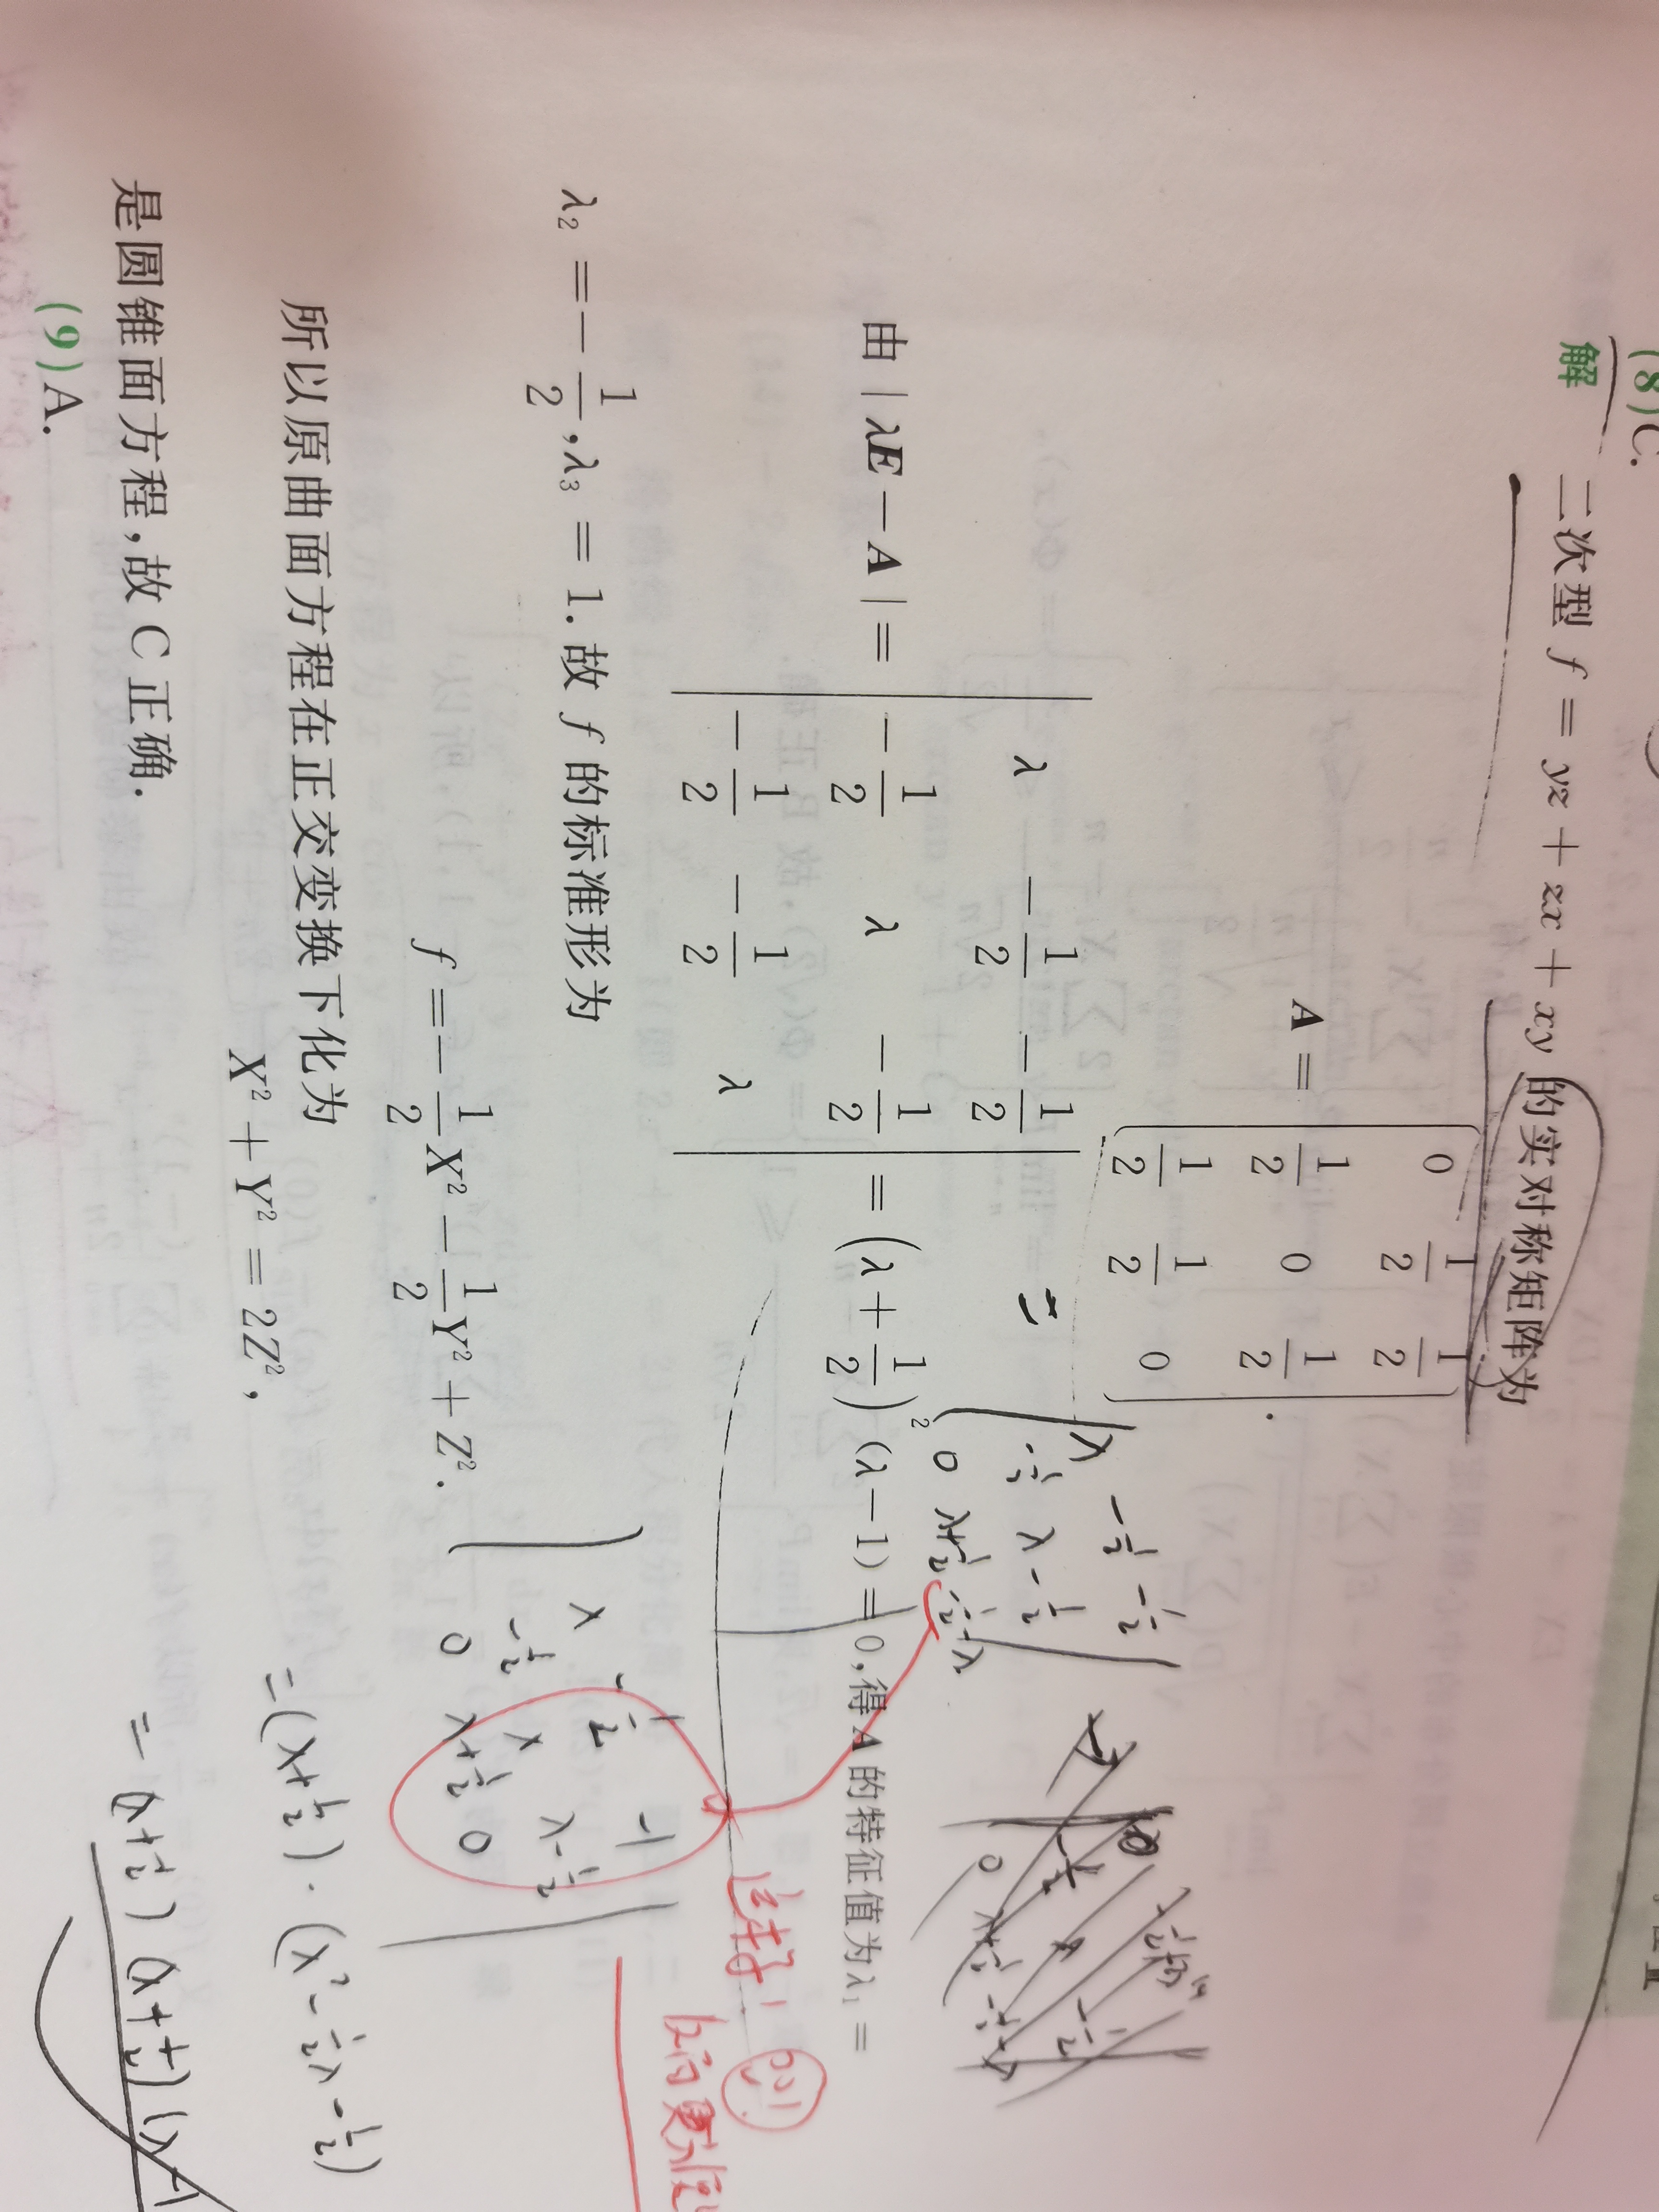 (8)C.
解 二次型 f = yz + zx + xy 的实对称矩阵为
A = ( 0 1/2 1/2
1/2 0 1/2
1/2 1/2 0 ).
由 | λE − A | = | λ −1/2 −1/2
−1/2 λ −1/2
−1/2 −1/2 λ | = (λ + 1/2)² (λ − 1) = 0, 得 A 的特征值为 λ₁ =
λ₂ = − 1/2, λ₃ = 1. 故 f 的标准形为
f = − 1/2 X² − 1/2 Y² + Z².
所以原曲面方程在正交变换下化为
X² + Y² = 2Z²,
是圆锥面方程,故 C 正确.
(9)A.
= | λ −1/2 −1/2
−1/2 λ −1/2
0 λ+1/2 −1/2−λ |
| λ −1/2 −1
−1/2 λ λ−1/2
0 λ+1/2 0 |
= (λ+1/2) · (λ² − 1/2 λ − 1/2)
= (λ+1/2) (λ+1/2) (λ−1)